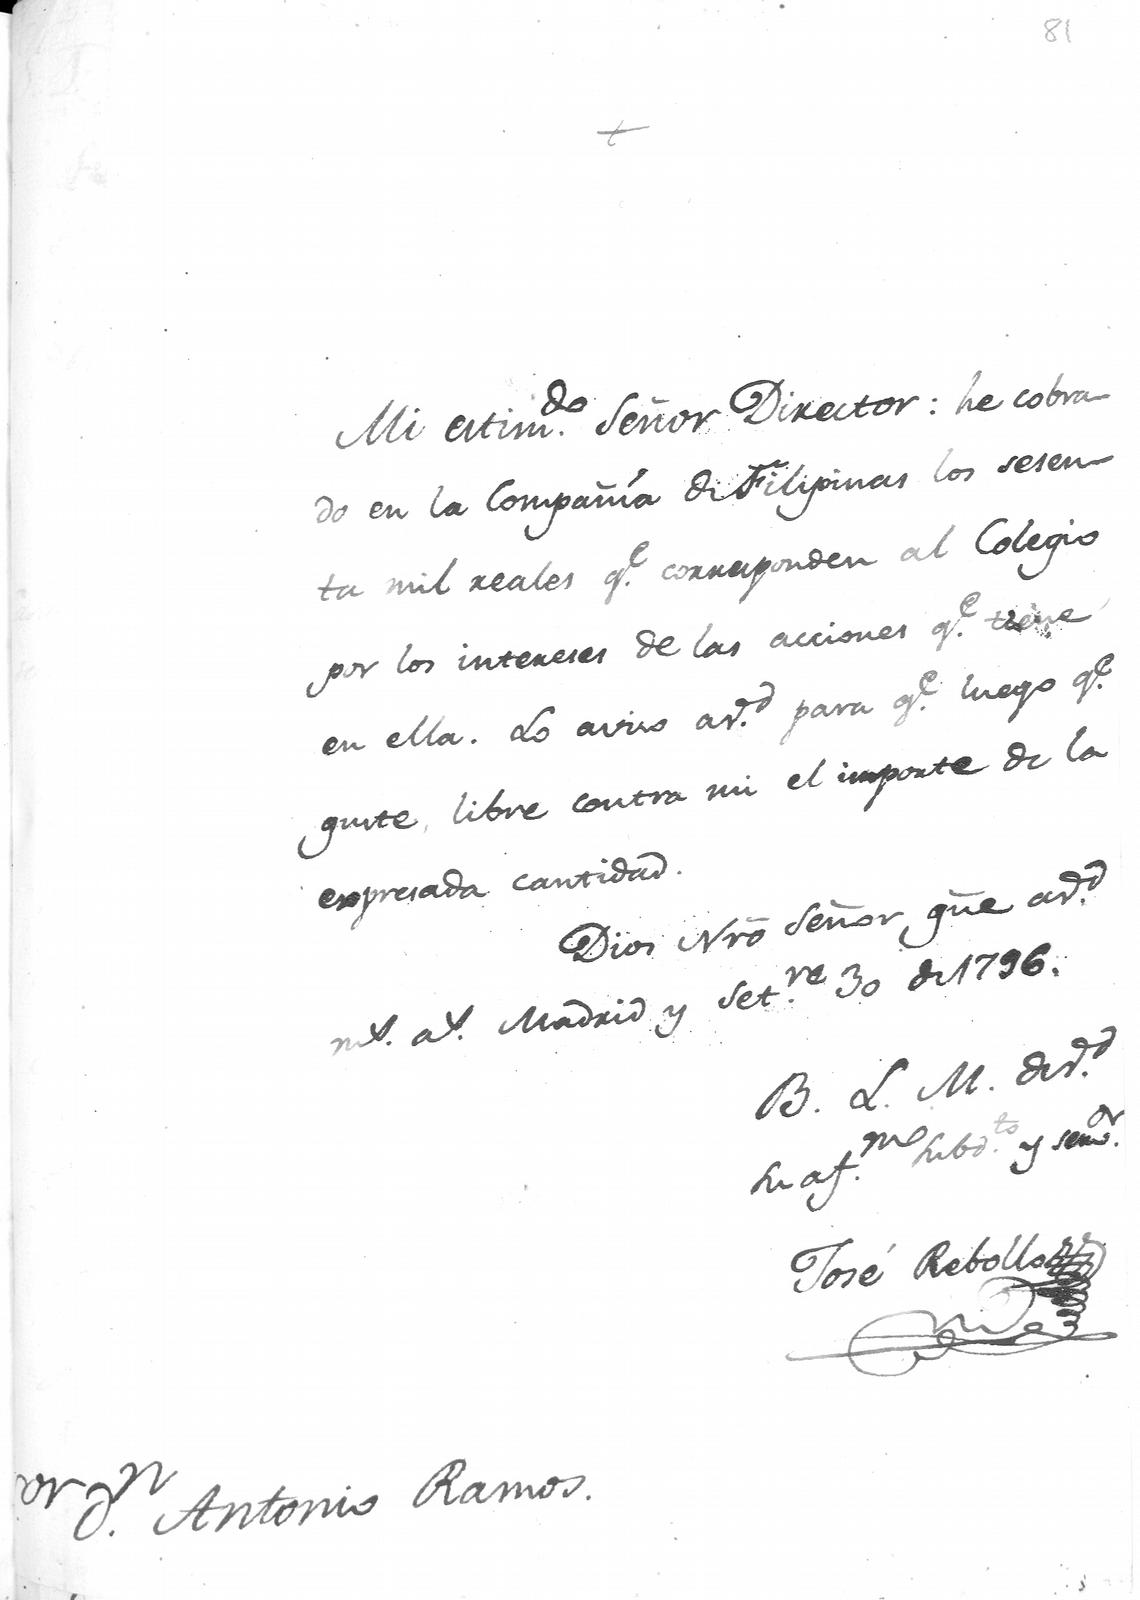 81
+
Mi estim.do Señor Director: he cobra-
do en la Compañía de Filipinas los sesen-
ta mil reales q.e corresponden al Colegio
por los intereses de las acciones q.e tiene
en ella. Lo aviso a v.d para q.e luego q.e
guste, libre contra mi el importe de la
expresada cantidad.
Dios Nrõ Señor gũe a v.d
m.s a.s Madrid y Set.re 30 de 1796.
B. L. M. de v.d
su af.mo subd.to y serv.or
José Rebollo
or d.n Antonio Ramos.